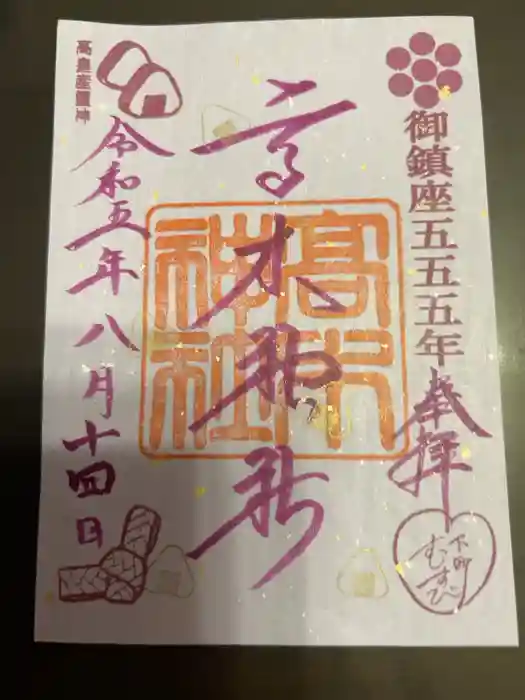 御鎮座五五五年
奉拝
下町
むすび
高木神社
髙木
神社
令和五年八月十四日
高皇産霊神